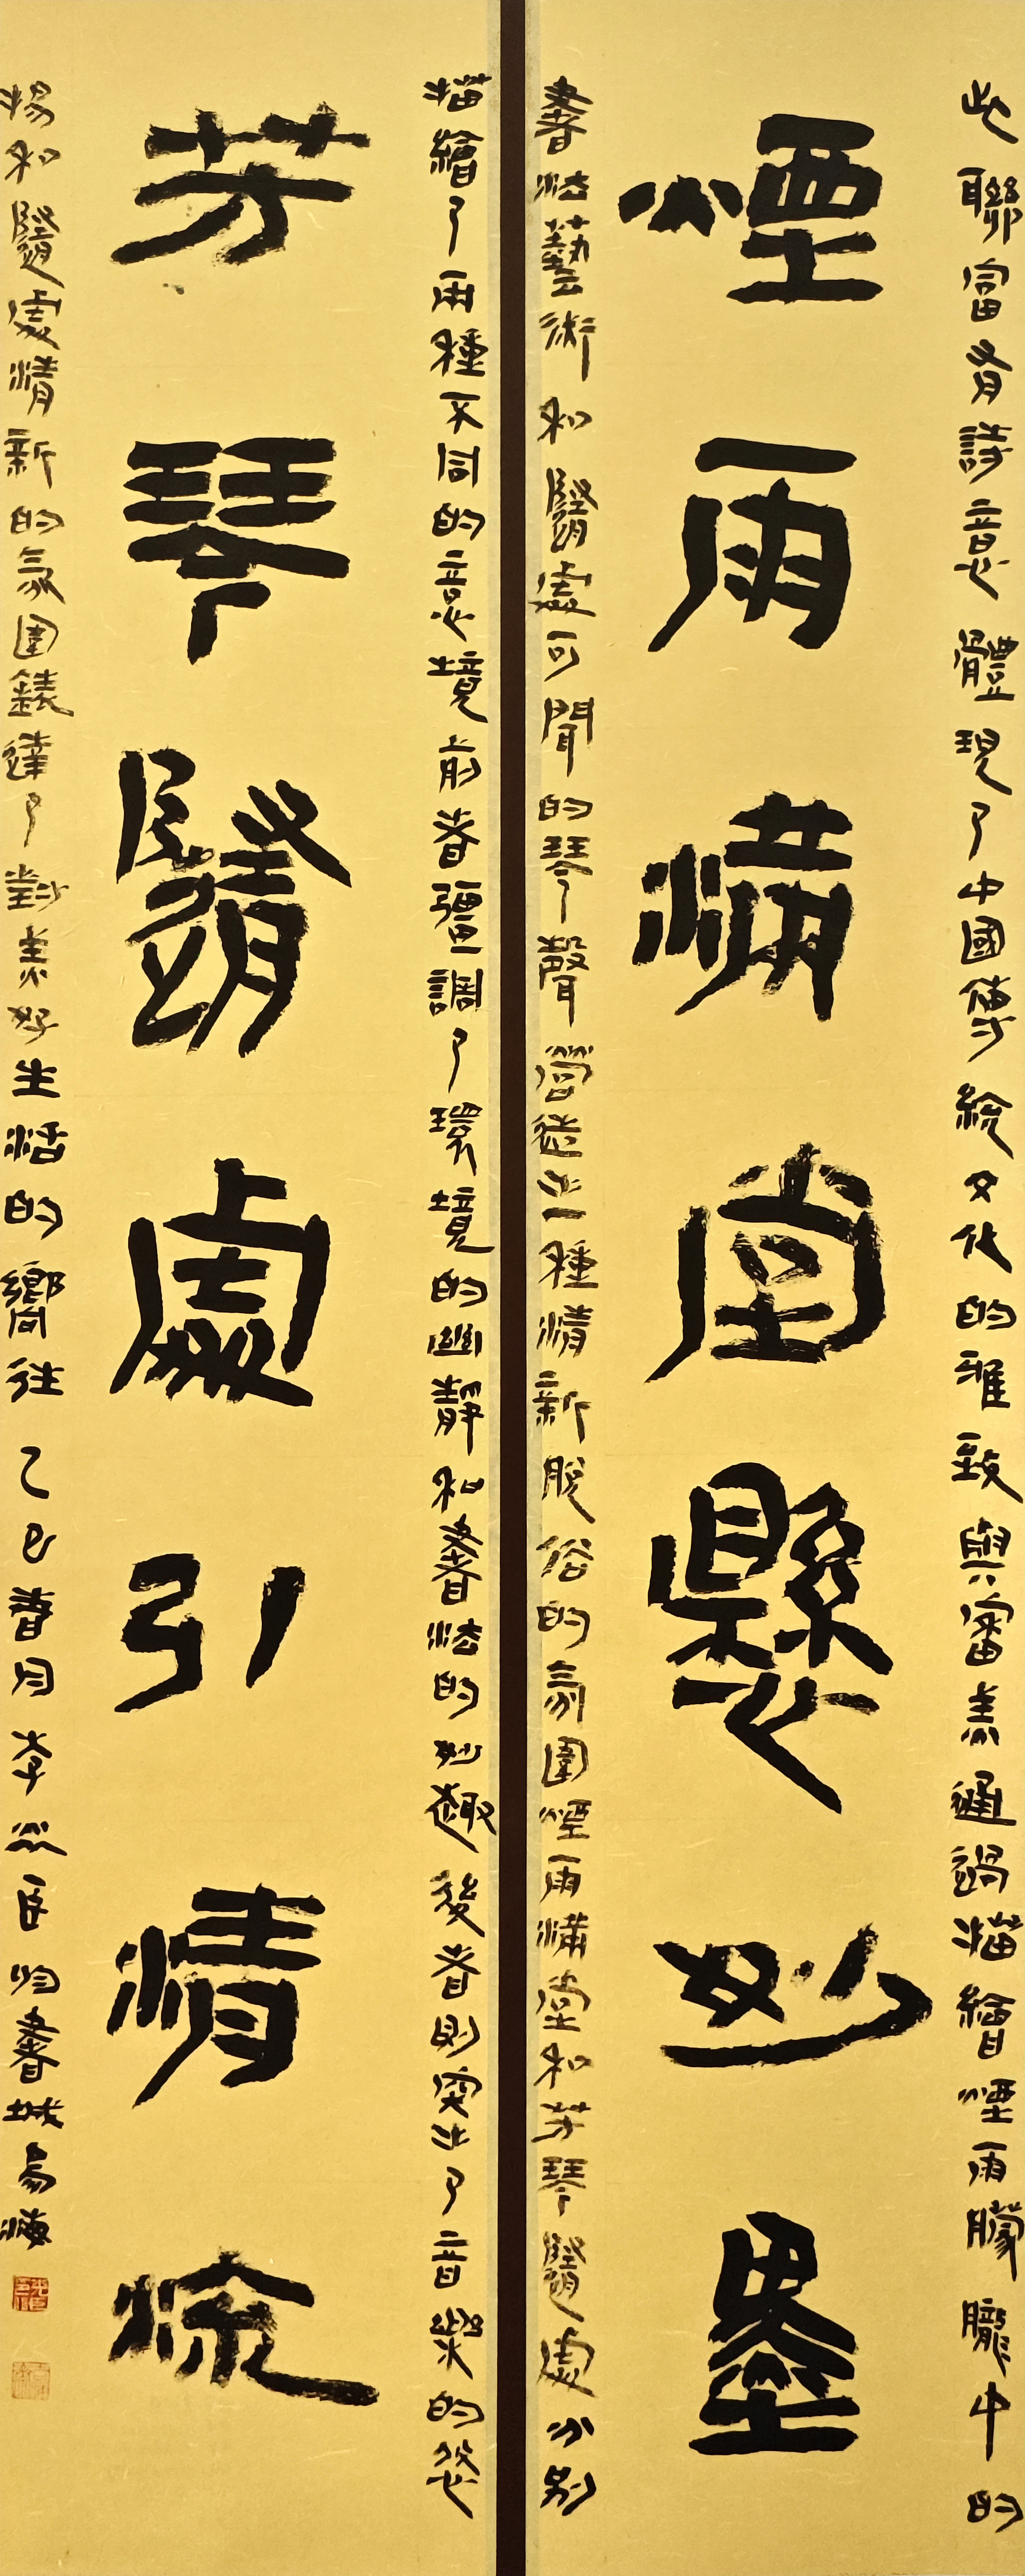 此聯富有詩意體現了中國傳統文化的雅致與審美通過描繪煙雨朦朧中的
煙雨滿堂懸妙墨
書法藝術和隨處可聞的琴聲營造出一種清新脫俗的氛圍煙雨滿堂和芳琴隨處分別
描繪了兩種不同的意境前者強調了環境的幽靜和書法的妙趣後者則突出了音樂的悠
芳琴隨處引清流
揚和隨處清新的氛圍錶達了對美好生活的嚮往乙巳春月李臣書城易海